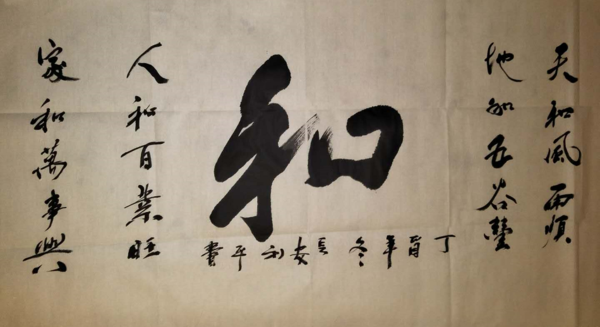 天和風雨順
地和五谷豐
和
人和百業旺
家和萬事興
丁酉年冬長安利平書